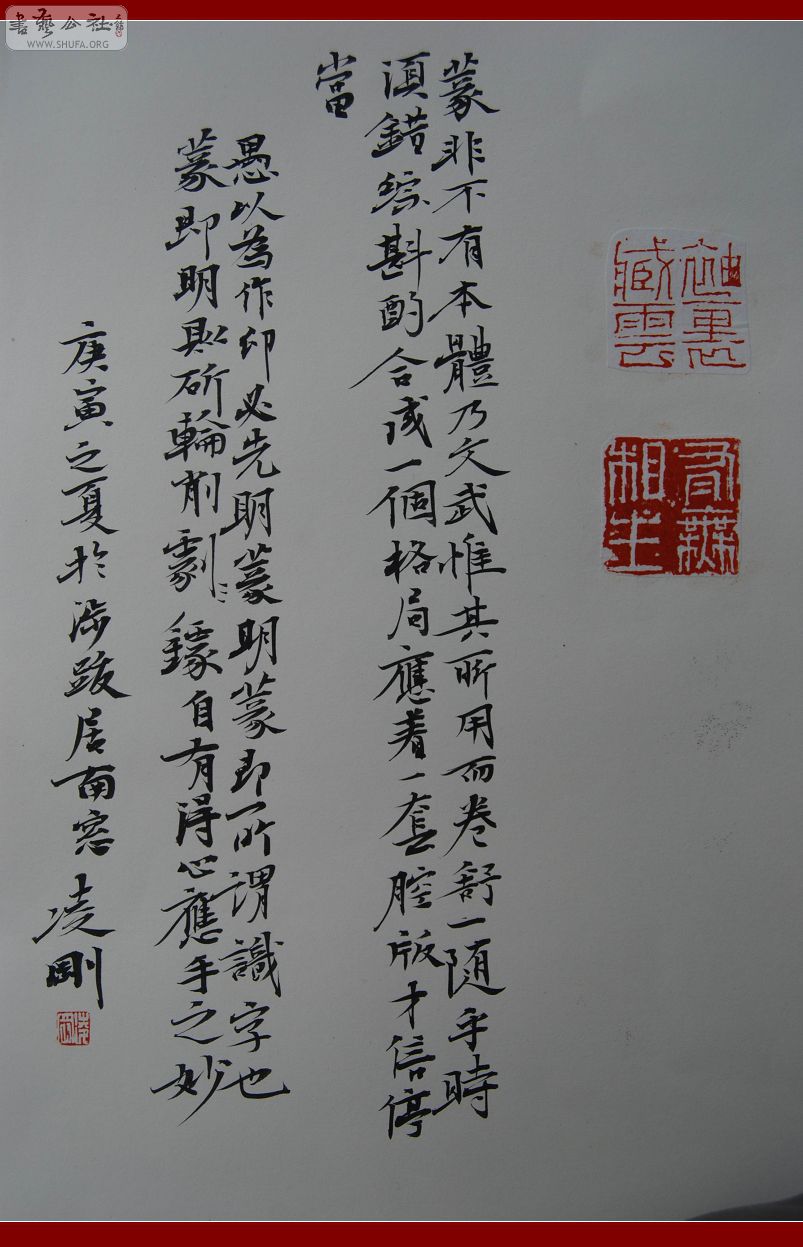 書藝公社
WWW.SHUFA.ORG
袖裏
臧雲
有無
相生
篆非不有本體乃文武惟其所用而卷舒一随乎時
須錯綜斟酌合成一個格局應着一套腔版才信停
當
愚以為作印必先明篆明篆即所謂識字也
篆即明則斫輪削劇鐻自有得心應手之妙
庚寅之夏於涉跋居南窓凌剛